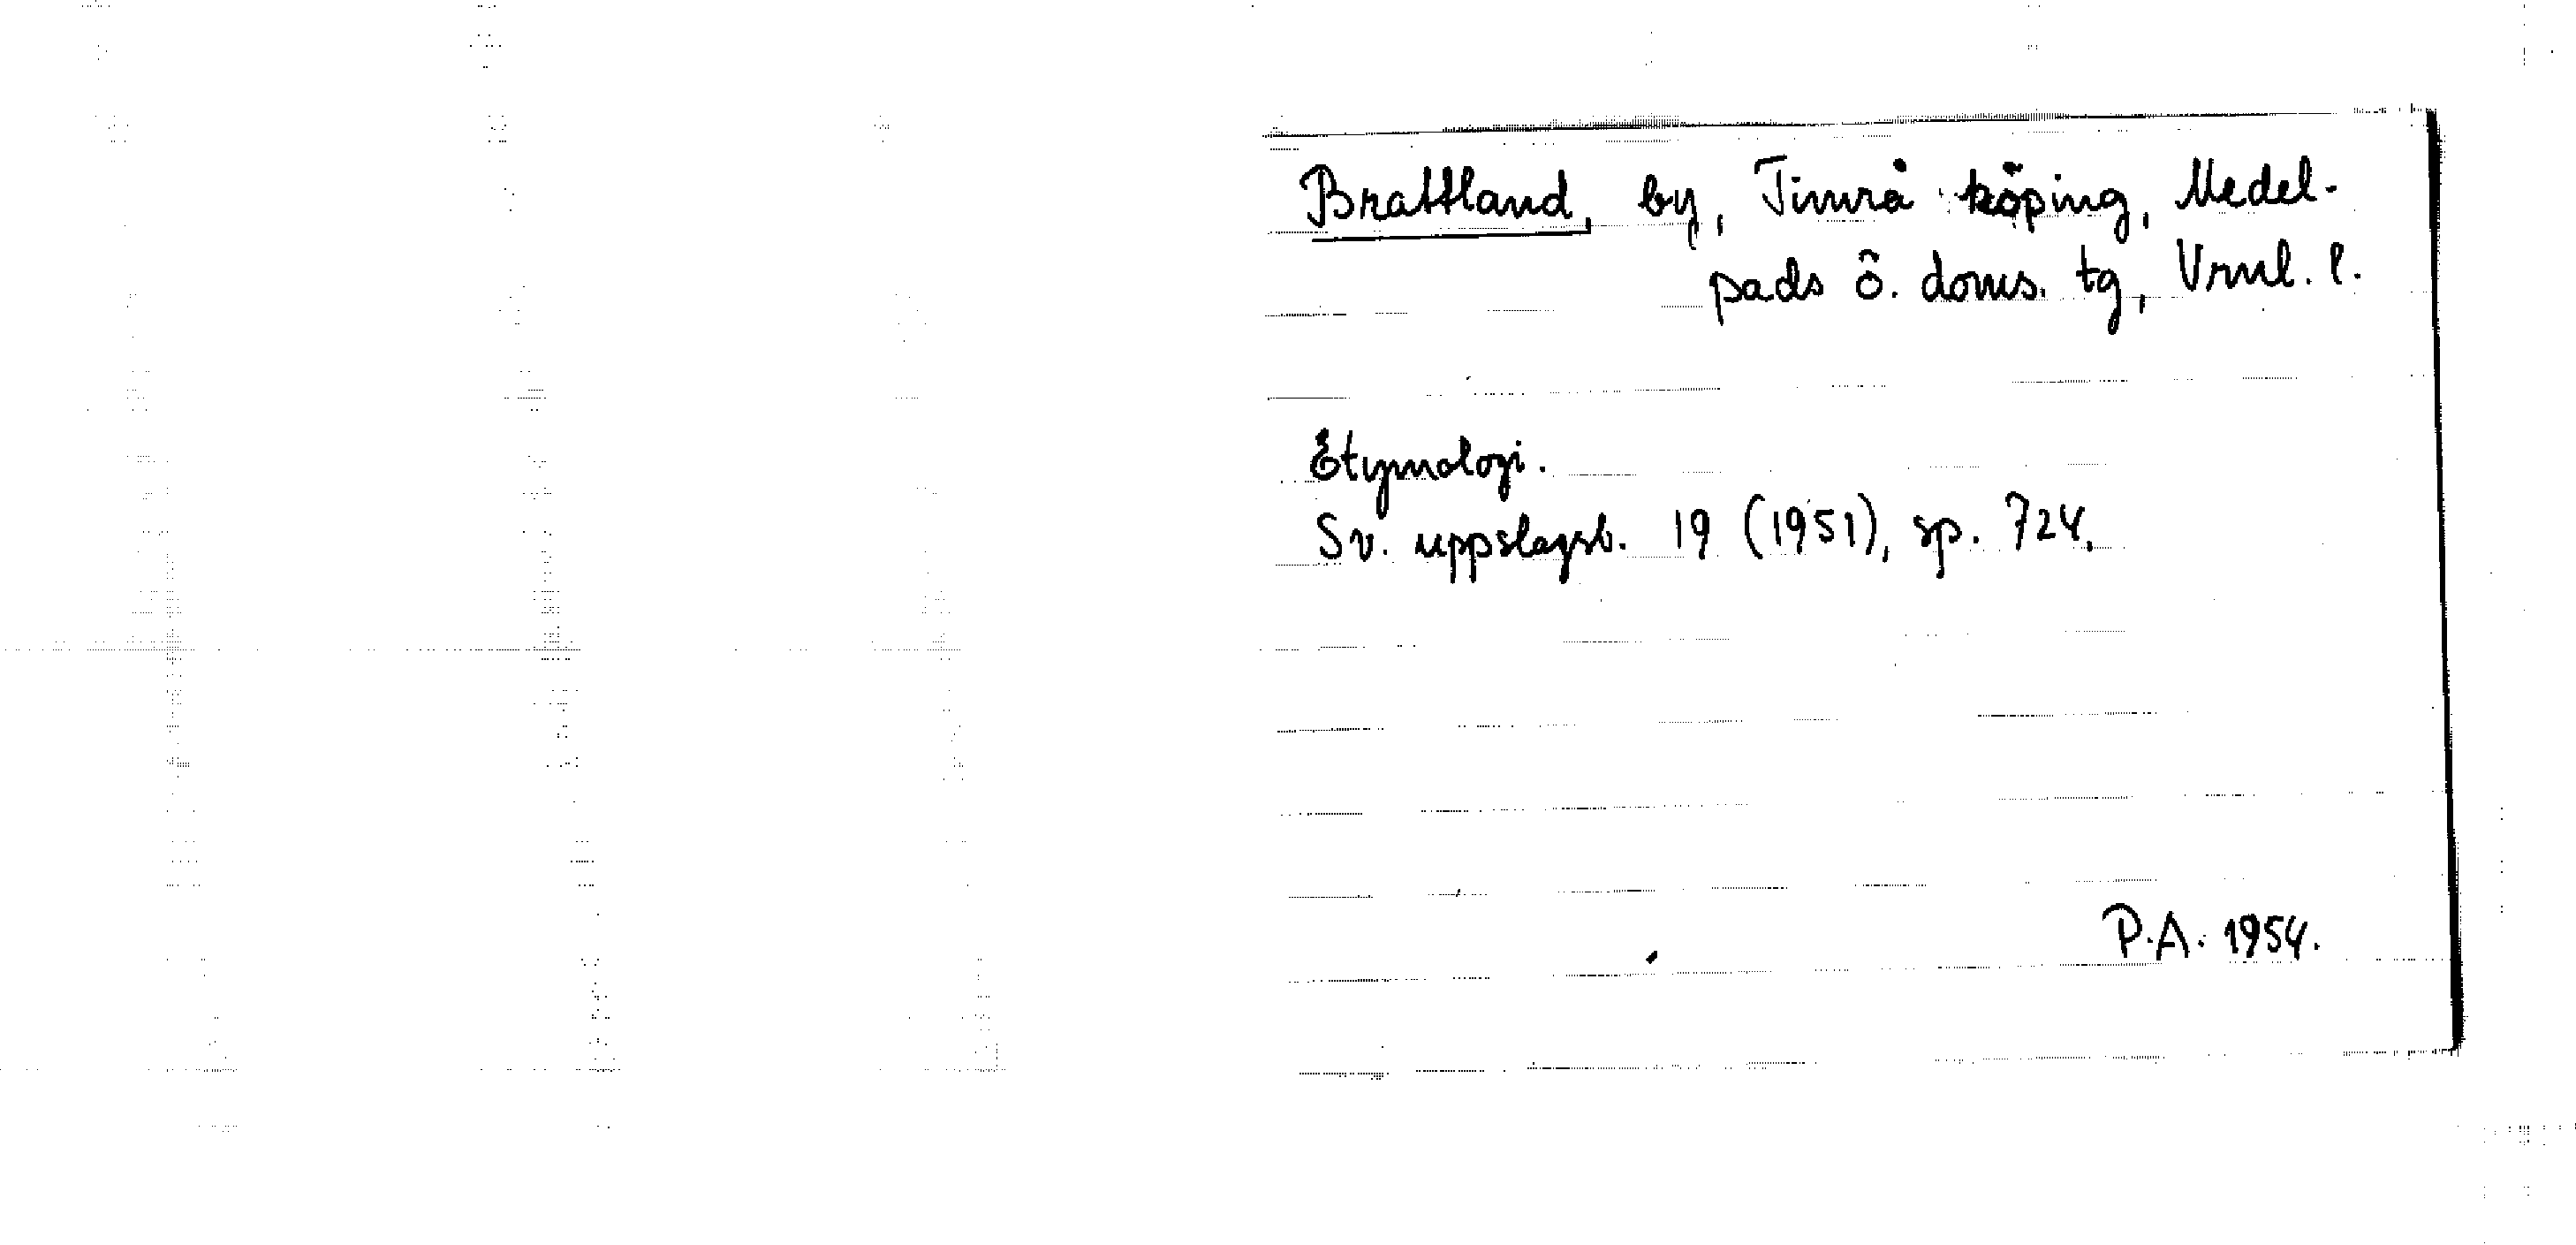 Brattland, by, Timrå köping, Medel-
pads ö. doms. tg, Vrnl. l.
Etymologi.
Sv. uppslagsb. 19 (1951), sp. 724.
P.A. 1954.